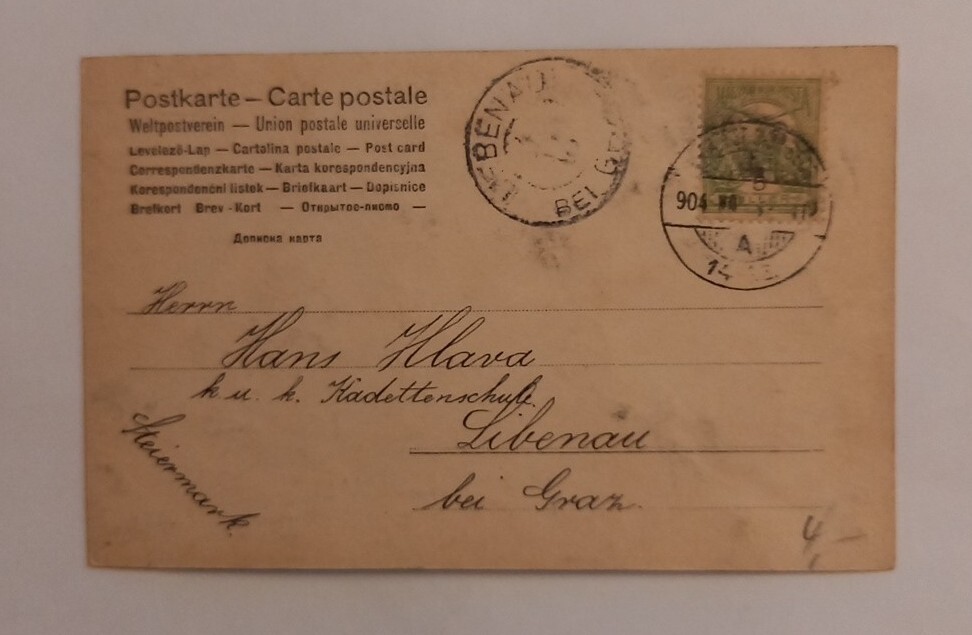 Postkarte – Carte postale
Weltpostverein — Union postale universelle
Levelező-Lap — Cartolina postale — Post card
Correspondenzkarte — Karta korespondencyjna
Korespondenční lístek — Briefkaart — Dopisnice
Brefkort Brev-Kort — Открытое-писмо —
Дописна карта
LIEBENAU
BEI GRAZ
904
5
A
14
Herrn
Hans Hlava
k. u. k. Kadettenschule
Libenau
bei Graz.
Steiermark.
4,–